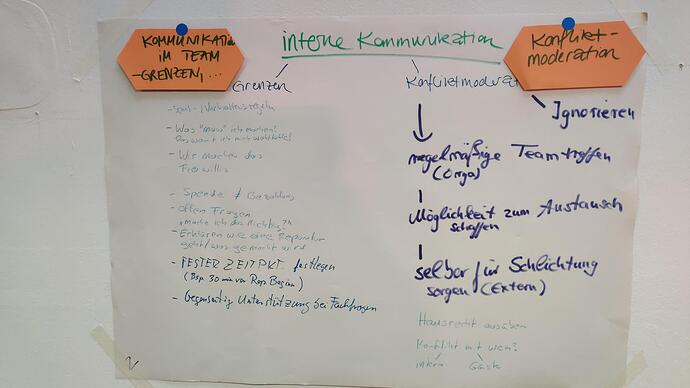 KOMMUNIKATION
IM TEAM
-GRENZEN,...
interne Kommunikation
Konflikt-
moderation
Grenzen
- Verhaltensregeln
- Was "muss" ich machen?
- Wir machen das
freiwillig
- Spende ≠ Bezahlung
- offen Fragen
"mache ich das Richtig?"
- Erklären wie eine Reparatur
geht/was gemacht wird
- FESTER ZEITPKT. festlegen
(Bsp. 30 min vor Rep. Beginn)
- Gegenseitig Unterstützung bei Fachfragen
Konfliktmoderat
Ignorieren
regelmäßige Teamtreffen
(Orga)
Möglichkeit zum Austausch
schaffen
selbar für Schlichtung
sorgen (Extern)
Hausrecht ausüben
Konflikt mit wem?
intern Gäste